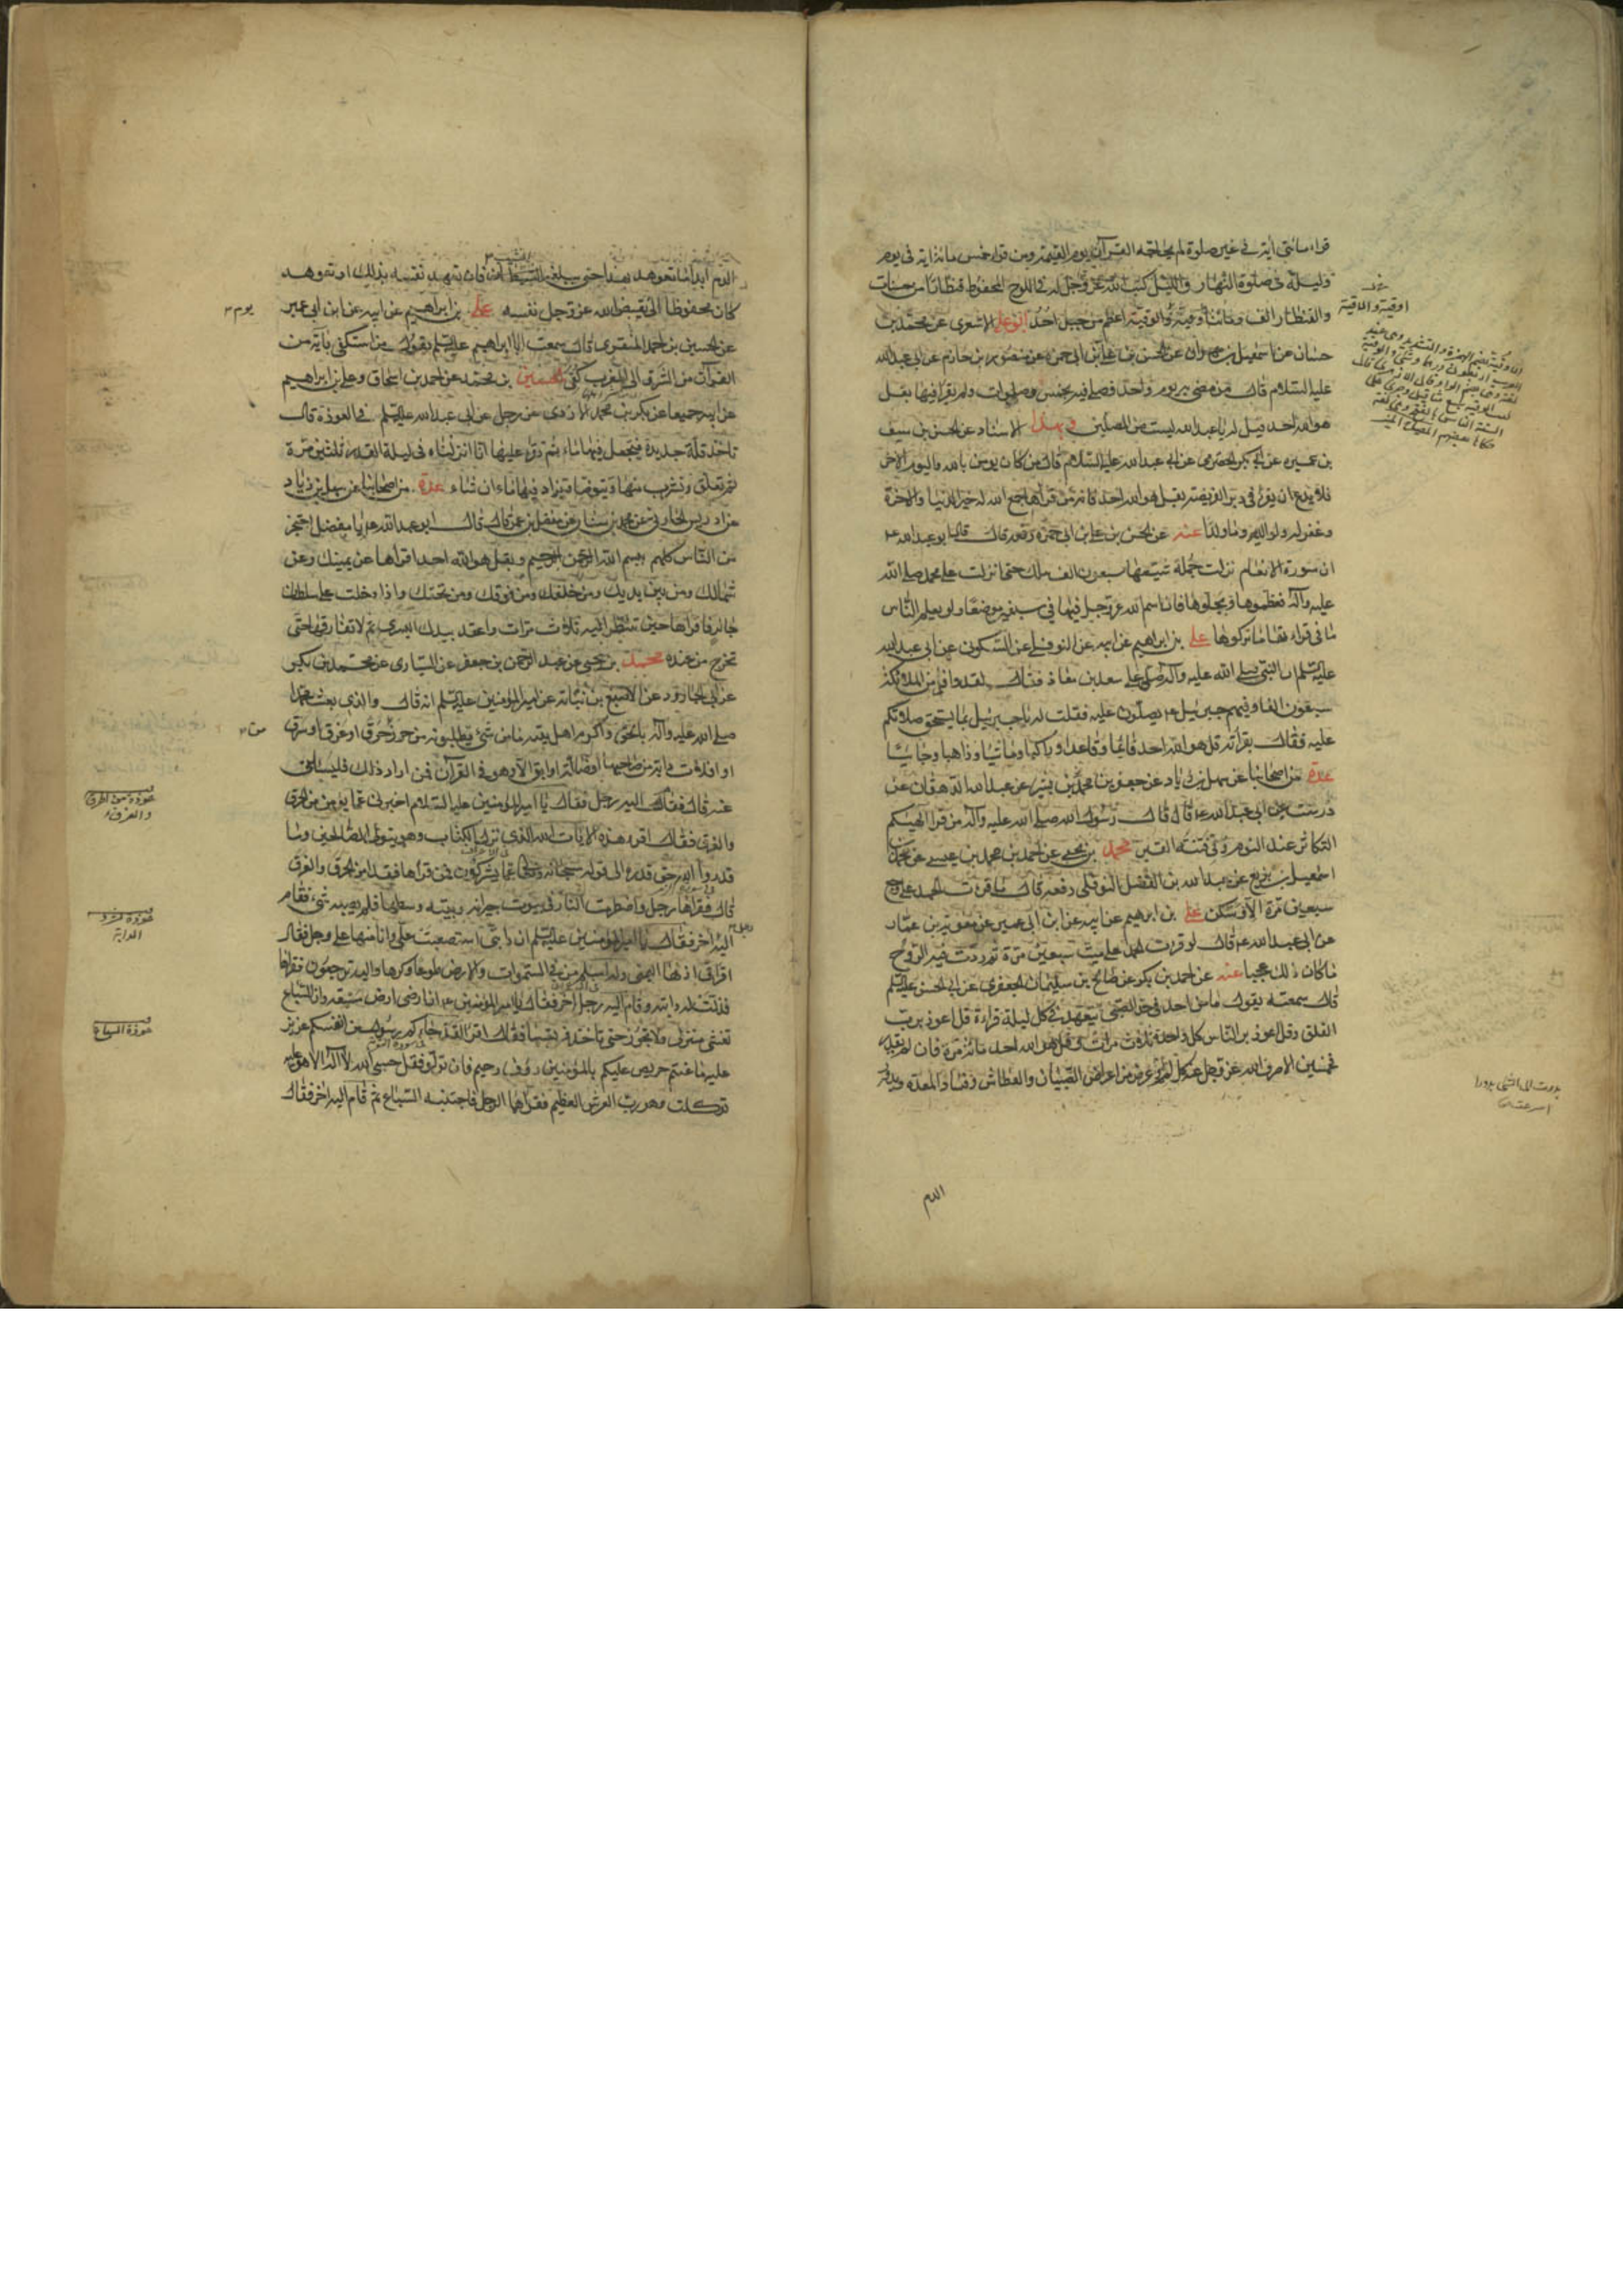 قراء مائتى آية في غير صلوة لم يحاجه القرآن يوم القيمة ومن قراء خمس مائة اية فى يوم
وليلة فى صلوة النهار والليل كتب الله عز وجل له فى اللوح المحفوظ قنطارا من حسنات
والقنطار الف ومائتا أوقية والوقية اعظم من جبل احد ابو على الاشعرى عن محمد بن
حسان عن اسمعيل بن مهران عن الحسن بن على بن ابى حمزة عن منصور بن حازم عن ابى عبد الله
عليه السلام قال من مضى به يوم واحد فصلى فيه بخمس صلوات ولم يقرا فيها بقل
هو الله احد قيل له يا عبد الله لست من المصلين وبهذا الاسناد عن الحسن بن سيف
بن عميرة عن ابى بكر الحضرمى عن ابى عبد الله عليه السلام قال من كان يومن بالله واليوم الاخر
فلا يدع ان يقرا فى دبر الفريضة بقل هو الله احد فانه من قراها جمع الله له خير الدنيا والاخرة
وغفر له ولوالديه وما ولدا عنه عن الحسن بن على بن ابى حمزة رفعه قال قال ابو عبد الله ع
ان سورة الانعام نزلت جملة شيعها سبعون الف ملك حتى انزلت على محمد صلى الله
عليه وآله فعظموها وبجلوها فان اسم الله عز وجل فيها فى سبعين موضعا ولو يعلم الناس
ما فى قراءتها ما تركوها على بن ابراهيم عن ابيه عن النوفلى عن السكونى عن ابى عبد الله
عليه السلم ان النبى صلى الله عليه وآله صلى على سعد بن معاذ فقال لقد وافى من الملائكة
سبعون الفا وفيهم جبرئيل ع يصلون عليه فقلت له يا جبرئيل بما يستحق صلاتكم
عليه فقال بقرائته قل هو الله احد قائما وقاعدا وراكبا وماشيا وذاهبا وجائيا
عدة من اصحابنا عن سهل بن زياد عن جعفر بن محمد بن بشير عن عبيد الله الدهقان عن
درست عن ابى عبد الله ع قال قال رسول الله صلى الله عليه وآله من قرا الهيكم
التكاثر عند النوم وقى فتنة القبر محمد بن يحيى عن احمد بن محمد بن عيسى عن محمد بن
اسمعيل بن بزيع عن عبد الله بن الفضل النوفلى رفعه قال ما قرئت الحمد على وجع
سبعين مرة الا وسكن على بن ابرهيم عن ابيه عن ابن ابى عمير عن معوية بن عمار
عن ابى عبد الله ع قال لو قرئت الحمد على ميت سبعين مرة ثم ردت فيه الروح
ما كان ذلك عجبا عنه عن احمد بن بكر عن صالح عن سليمان الجعفرى عن ابى الحسن عليه السلم
قال سمعته يقول ما من احد فى حد الصبى يتعهد فى كل ليلة قراءة قل اعوذ برب
الفلق وقل اعوذ برب الناس كل واحدة ثلاث مرات وقل هو الله احد مائة مرة فان لم يقدر
فخمسين الا صرف الله عز وجل عنه كل لمم او عرض من اعراض الصبيان والعطاش وفساد المعدة وبدور
الدم
اوقية والاوقية
الدم ابدا ما تعوهد بهذا حتى يبلغه الشيب فان تعهد نفسه بذلك او تعوهد
كان محفوظا الى يوم يقبض الله عز وجل نفسه على بن ابراهيم عن ابيه عن ابن ابى عمير
عن الحسين بن احمد المنقرى قال سمعت ابا ابراهيم عليه السلم يقول من استكفى باية من
القرآن من الشرق الى الغرب كفى الحسين بن محمد عن احمد بن اسحاق وعلى بن ابراهيم
عن ابيه جميعا عن بكر بن محمد الازدى عن رجل عن ابى عبد الله عليه السلم فى العوذة قال
تاخذ قلة جديدة فيجعل فيها ماء ثم تقرء عليها انا انزلناه فى ليلة القدر ثلثين مرة
ثم تعلق وتشرب منها وتتوضا وتزداد فيها ماء ان شاء عدة من اصحابنا عن سهل بن زياد
عن ادريس الحارثى عن محمد بن سنان عن مفضل بن عمر قال قال ابو عبد الله ع يا مفضل احتجز
من الناس كلهم ببسم الله الرحمن الرحيم وبقل هو الله احد اقراها عن يمينك وعن
شمالك ومن بين يديك ومن خلفك ومن فوقك ومن تحتك واذا دخلت على سلطان
جائر فاقراها حين تنظر اليه ثلاث مرات واعقد بيدك اليسرى ثم لا تفارقها حتى
تخرج من عنده محمد بن يحيى عن عبد الله بن جعفر عن السيارى عن محمد بن بكر
عن ابى الجارود عن الاصبغ بن نباتة عن امير المؤمنين عليه السلم انه قال والذى بعث محمدا
صلى الله عليه وآله بالحق واكرم اهل بيته ما من شىء تطلبونه من حرز من حرق او غرق او سرق
او افلات دابة من صاحبها او ضالة او ابق الا وهو فى القرآن فمن اراد ذلك فليسالنى
عنه قال فقام اليه رجل فقال يا امير المؤمنين عليه السلام اخبرنى عما يؤمن من الحرق
والغرق فقال اقرء هذه الايات الله الذى نزل الكتاب وهو يتولى الصالحين وما
قدروا الله حق قدره الى قوله سبحانه وتعالى عما يشركون فمن قراها فقد امن الحرق والغرق
قال فقراها رجل واضطرمت النار فى بيوت جيرانه وبيته وسطها فلم يصبه شىء فقام
اليه اخر فقال يا امير المؤمنين عليه السلم ان دابتى استصعبت على وانا منها على وجل فقال
اقرا فى اذنها اليمنى وله اسلم من فى السموات والارض طوعا وكرها واليه ترجعون فقراها
فذلت له دابته وقام اليه رجل اخر فقال يا امير المؤمنين ع ان ارضى ارض مسبعة وان السباع
تغشى منزلى ولا تجوز حتى تاخذ فريستها فقال اقرا لقد جاءكم رسول من انفسكم عزيز
عليه ما عنتم حريص عليكم بالمؤمنين رؤف رحيم فان تولوا فقل حسبى الله لا اله الا هو عليه
توكلت وهو رب العرش العظيم فقراهما الرجل فاجتنبته السباع ثم قام اليه اخر فقال
يوم
عوذة من الحرق
والغرق
عوذة
الدابة
عوذة السباع